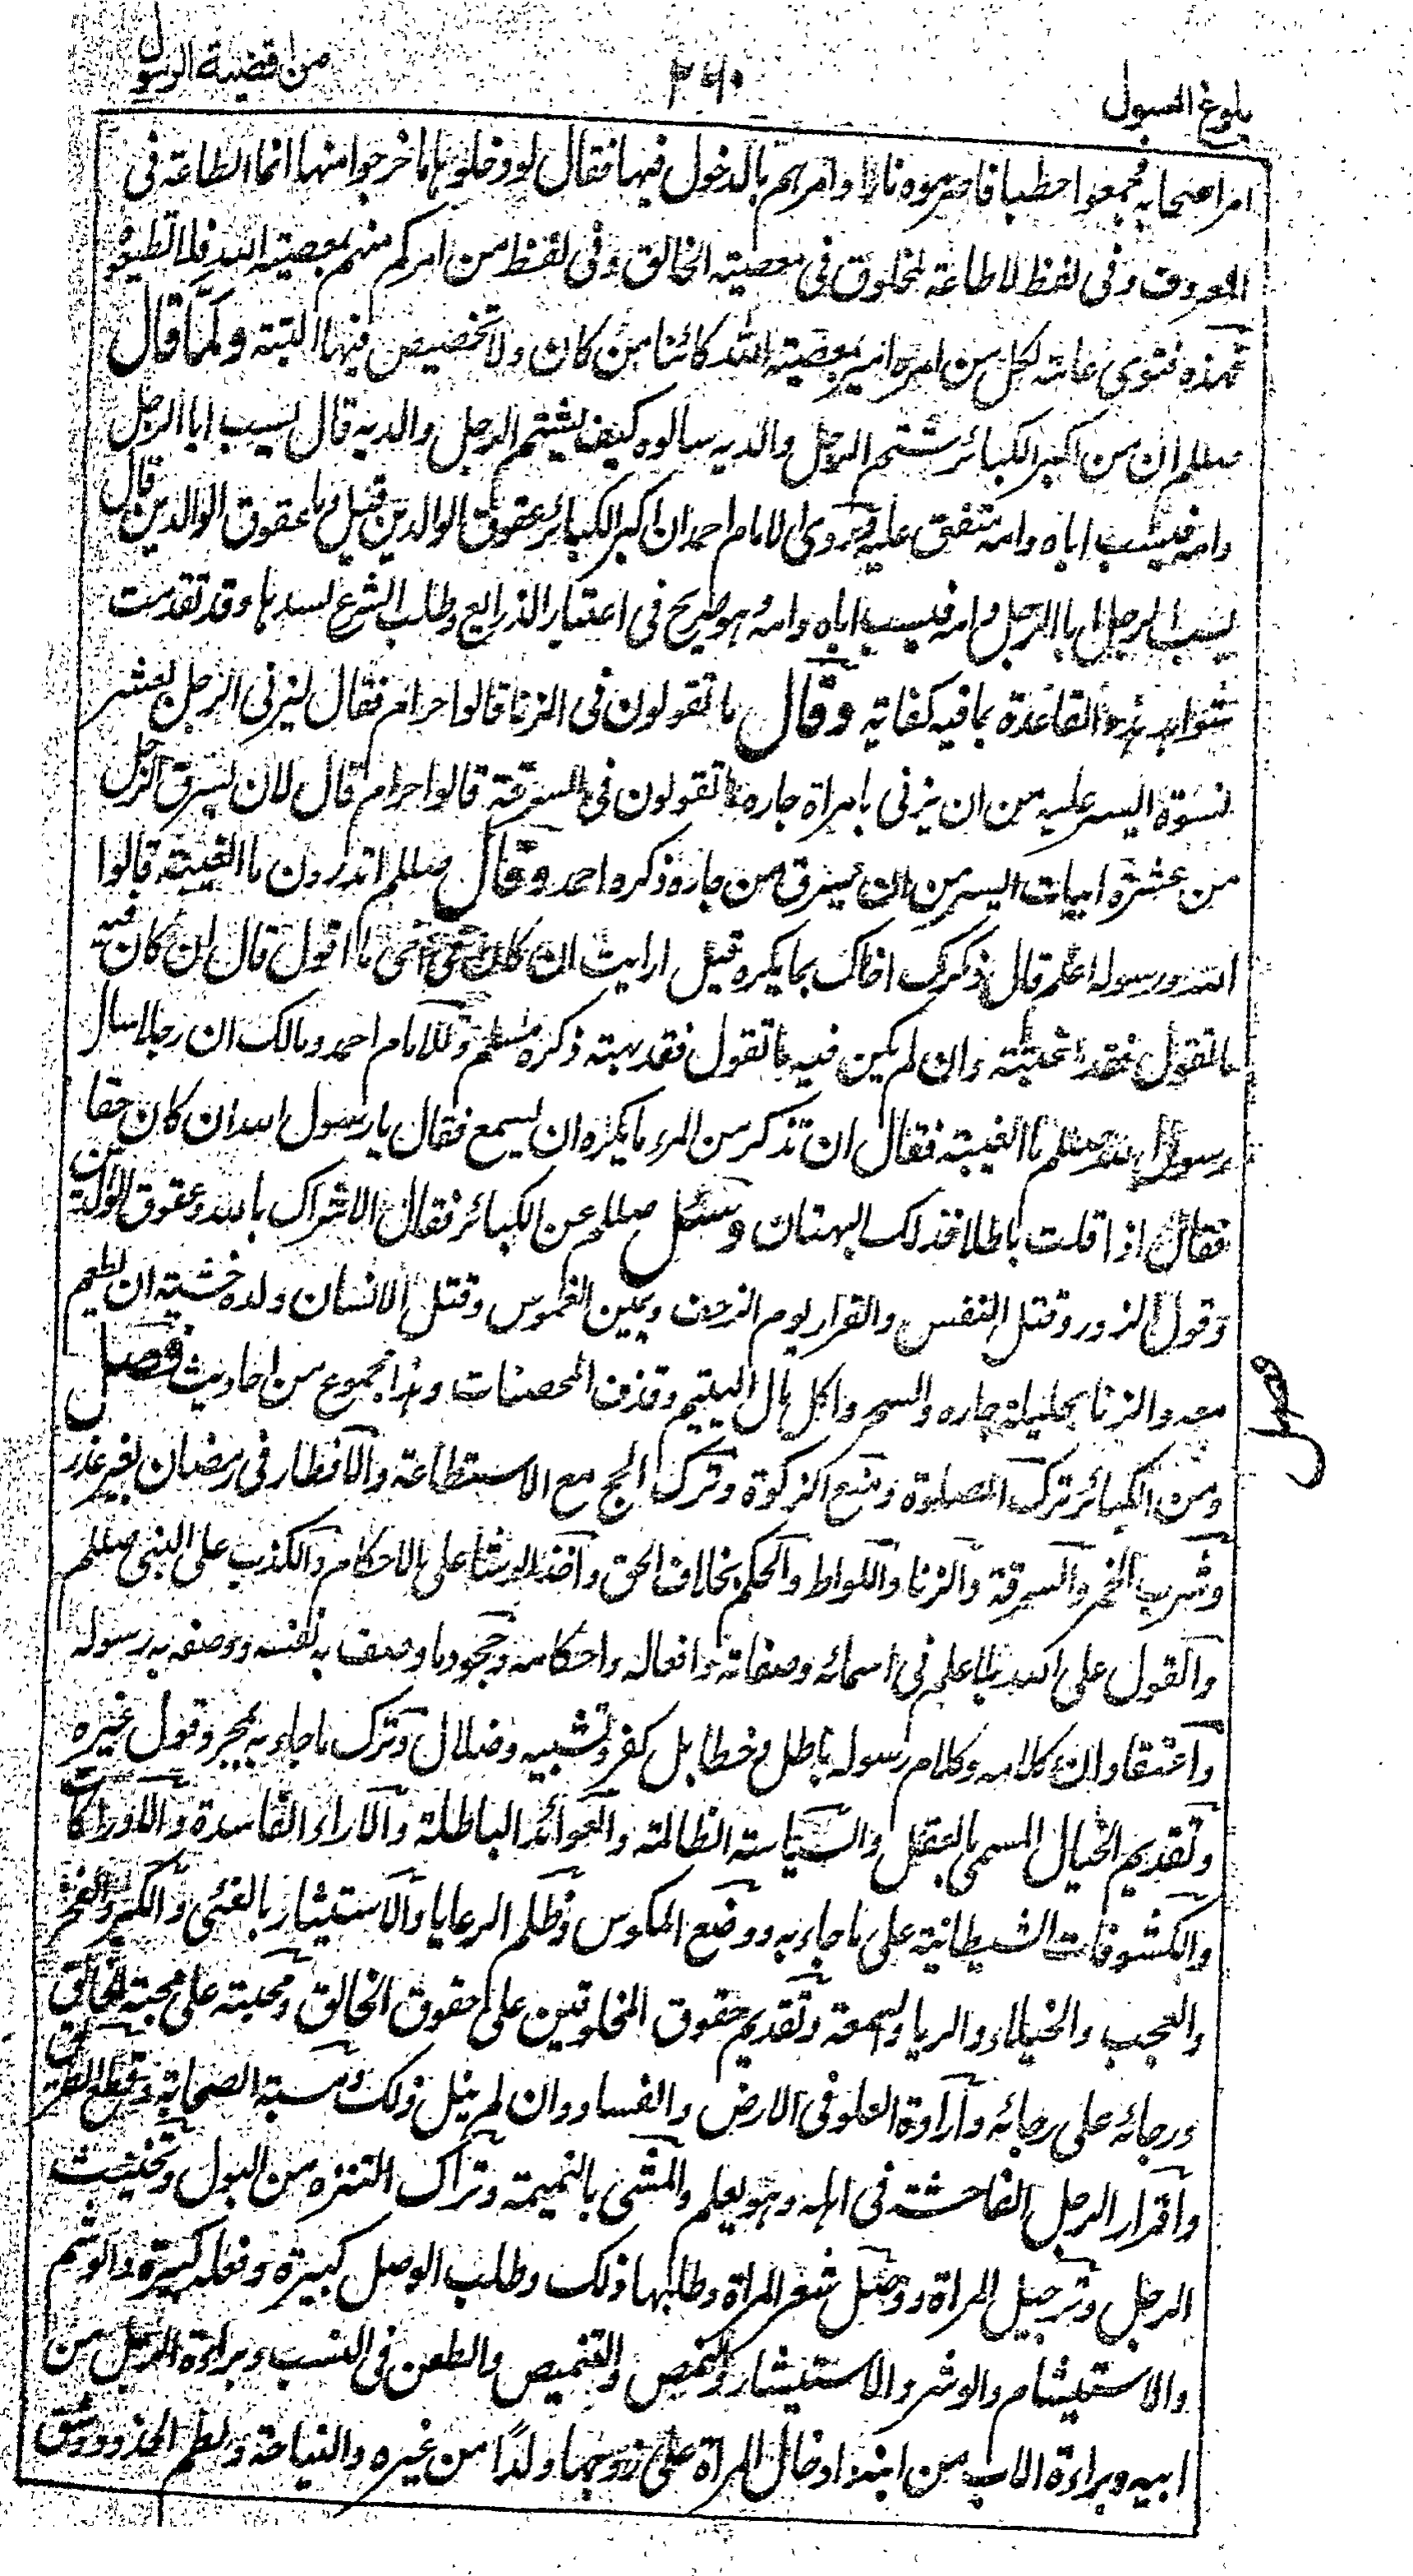 بلوغ السول
٢٦٠
من اقضية الرسول
امر اصحابه فجمعوا حطبا فاضرموه نارا وامرهم بالدخول فيها فقال لو دخلوها ما خرجوا منها انما الطاعة فى
المعروف وفى لفظ لا طاعة لمخلوق فى معصية الخالق وفى لفظ من امركم منهم بمعصية الله فلا تطيعوه
فهذه فتوى عامة لكل من امره امير بمعصية الله كائنا من كان ولا تخصيص فيها البتة ولما قال
صللم ان من اكبر الكبائر شتم الرجل والديه سالوه كيف يشتم الرجل والديه قال يسب ابا الرجل
وامه فيسب اباه وامه متفق عليه وروى الامام احمد ان اكبر الكبائر عقوق الوالدين قيل وما عقوق الوالدين قال
يسب الرجل ابا الرجل وامه فيسب اباه وامه وهو صريح فى اعتبار الذرايع وطلب الشرع لسدها وقد تقدمت
شواهد هذه القاعدة بما فيه كفاية وقال ما تقولون فى الزنا قالوا حرام فقال ليزنى الرجل بعشر
نسوة ايسر عليه من ان يزنى بامراة جاره ما تقولون فى السرقة قالوا حرام قال لان يسرق الرجل
من عشرة ابيات ايسر من ان يسرق من جاره ذكره احمد وقال صللم اتدرون ما الغيبة قالوا
الله ورسوله اعلم قال ذكرك اخاك بما يكره قيل ارايت ان كان فى اخى ما اقول قال ان كان فيه
ما تقول فقد اغتبته وان لم يكن فيه ما تقول فقد بهته ذكره مسلم وللامام احمد ومالك ان رجلا سال
رسول الله صللم ما الغيبة فقال ان تذكر من المرء ما يكره ان يسمع فقال يا رسول الله ان كان حقا
فقال اذا قلت باطلا فذلك البهتان وسئل صللم عن الكبائر فقال الاشراك بالله وعقوق الوالدين
وقول الزور وقتل النفس والفرار يوم الزحف ويمين الغموس وقتل الانسان ولده خشية ان يطعم
معه والزنا بحليلة جاره والسحر واكل مال اليتيم وقذف المحصنات وهذا مجموع من احاديث فصل
فصل
ومن الكبائر ترك الصلوة ومنع الزكوة وترك الحج مع الاستطاعة والافطار فى رمضان لغير عذر
وشرب الخمر والسرقة والزنا واللواط والحكم بخلاف الحق واخذ الرشا على الاحكام والكذب على النبى صللم
والقول على الله بلا علم فى اسمائه وصفاته وافعاله واحكامه وجحود ما وصف به نفسه ووصفه به رسوله
واعتقاد ان كلامه وكلام رسوله باطل وخطا بل كفر وتشبيه وضلال وترك ما جاء به لمجرد قول غيره
وتقديم الخيال المسمى بالعقل والسياسة الظالمة والعوائد الباطلة والاراء الفاسدة والادراكات
والكشوفات الشيطانية على ما جاء به ووضع المكوس وظلم الرعايا والاستيثار بالفئى والكبر والفخر
والعجب والخيلاء والريا والسمعة وتقديم حقوق المخلوقين على حقوق الخالق ومحبته على محبة الخالق
ورجائه على رجائه وارادة العلو فى الارض والفساد وان لم ينل ذلك ومسبة الصحابة وقطع الطريق
واقرار الرجل الفاحشة فى اهله وهو يعلم والمشى بالنميمة وترك التنزه من البول وتخنيث
الرجل وترجيل المراة ووصل شعر المراة وطلبها ذلك وطلب الوصل كبيرة وفعله كبيرة والوشم
والاستيشام والوشر والاستيشار والنمص والتنميص والطعن فى النسب وبراءة الرجل من
ابيه وبراءة الاب من ابنه وادخال المراة على زوجها ولدًا من غيره والنياحة ولطم الخدود وشق